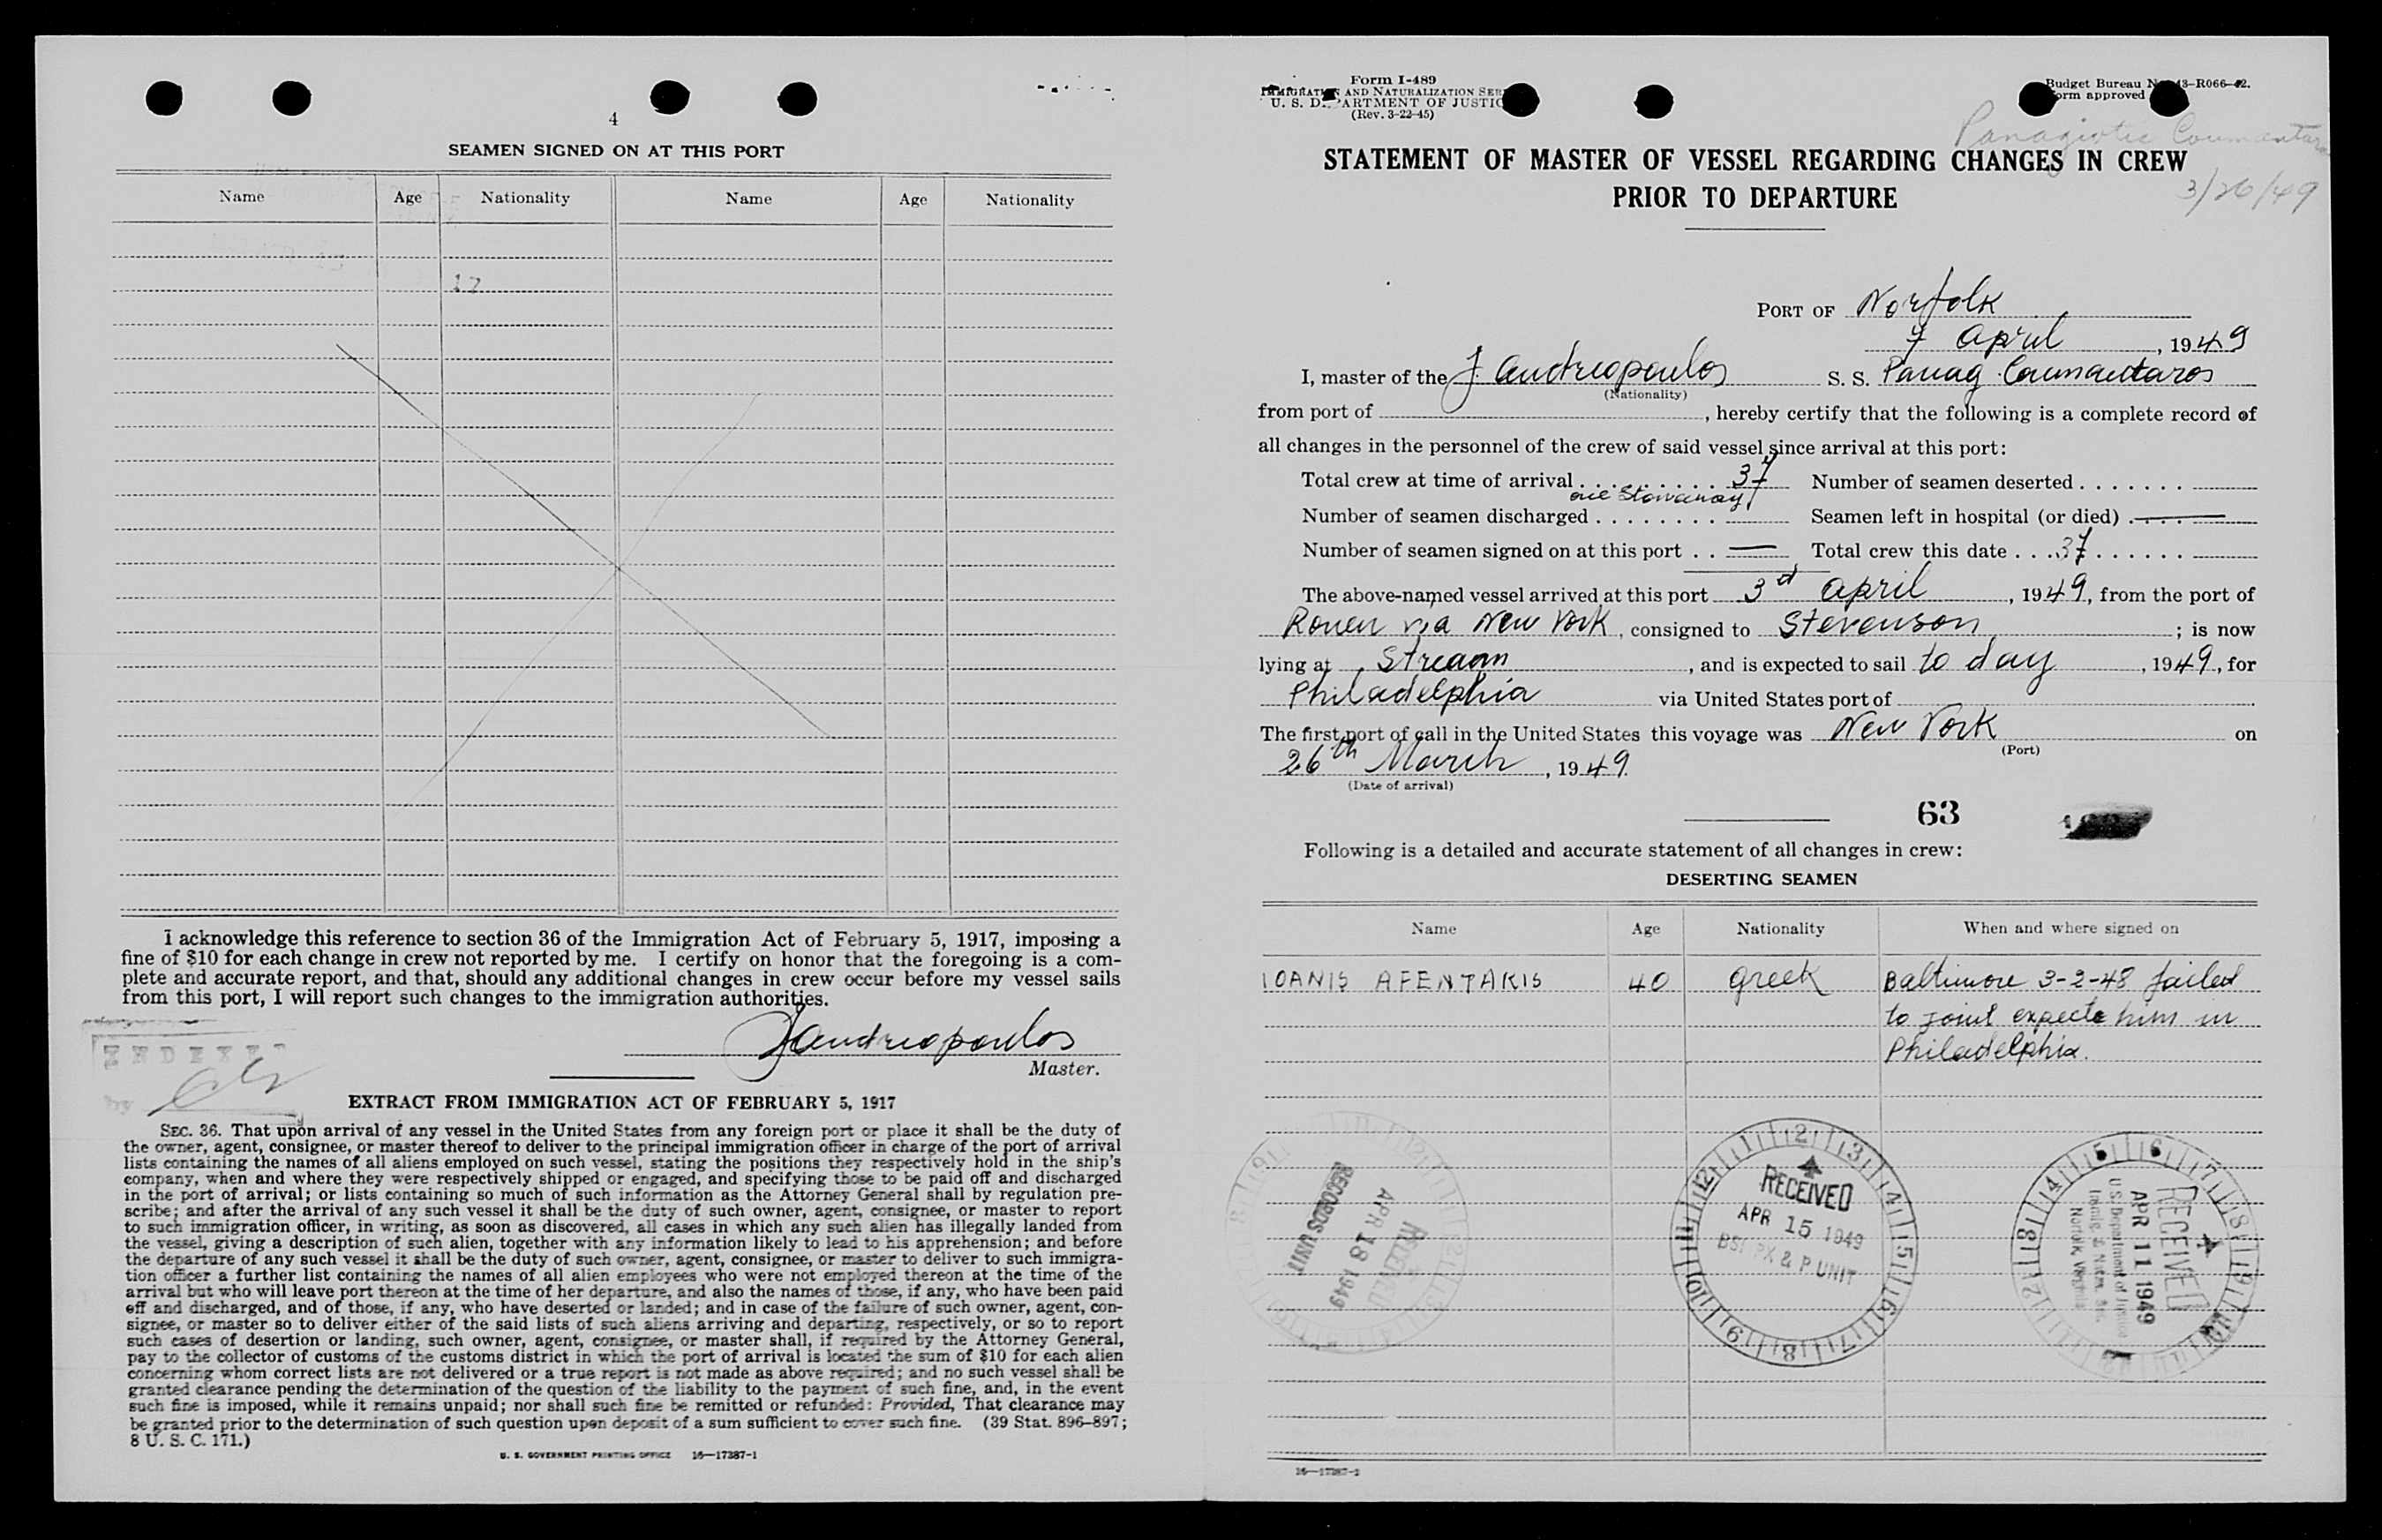 4
SEAMEN SIGNED ON AT THIS PORT
Name Age Nationality Name Age Nationality
17
I acknowledge this reference to section 36 of the Immigration Act of February 5, 1917, imposing a
fine of $10 for each change in crew not reported by me. I certify on honor that the foregoing is a com-
plete and accurate report, and that, should any additional changes in crew occur before my vessel sails
from this port, I will report such changes to the immigration authorities.
J Andreopoulos
Master.
INDEXED
by
EXTRACT FROM IMMIGRATION ACT OF FEBRUARY 5, 1917
SEC. 36. That upon arrival of any vessel in the United States from any foreign port or place it shall be the duty of
the owner, agent, consignee, or master thereof to deliver to the principal immigration officer in charge of the port of arrival
lists containing the names of all aliens employed on such vessel, stating the positions they respectively hold in the ship's
company, when and where they were respectively shipped or engaged, and specifying those to be paid off and discharged
in the port of arrival; or lists containing so much of such information as the Attorney General shall by regulation pre-
scribe; and after the arrival of any such vessel it shall be the duty of such owner, agent, consignee, or master to report
to such immigration officer, in writing, as soon as discovered, all cases in which any such alien has illegally landed from
the vessel, giving a description of such alien, together with any information likely to lead to his apprehension; and before
the departure of any such vessel it shall be the duty of such owner, agent, consignee, or master to deliver to such immigra-
tion officer a further list containing the names of all alien employees who were not employed thereon at the time of the
arrival but who will leave port thereon at the time of her departure, and also the names of those, if any, who have been paid
off and discharged, and of those, if any, who have deserted or landed; and in case of the failure of such owner, agent, con-
signee, or master so to deliver either of the said lists of such aliens arriving and departing, respectively, or so to report
such cases of desertion or landing, such owner, agent, consignee, or master shall, if required by the Attorney General,
pay to the collector of customs of the customs district in which the port of arrival is located the sum of $10 for each alien
concerning whom correct lists are not delivered or a true report is not made as above required; and no such vessel shall be
granted clearance pending the determination of the question of the liability to the payment of such fine, and, in the event
such fine is imposed, while it remains unpaid; nor shall such fine be remitted or refunded: Provided, That clearance may
be granted prior to the determination of such question upon deposit of a sum sufficient to cover such fine. (39 Stat. 896-897;
8 U. S. C. 171.)
U. S. GOVERNMENT PRINTING OFFICE 16—17387-1
Form I-489
IMMIGRATION AND NATURALIZATION SER
U. S. DEPARTMENT OF JUSTIC
(Rev. 3-22-45)
Budget Bureau N 43-R066-42.
orm approved
Panagiotis Coumantaros
3/26/49
STATEMENT OF MASTER OF VESSEL REGARDING CHANGES IN CREW
PRIOR TO DEPARTURE
PORT OF Norfolk
7 April, 1949
I, master of the J. Andreopoulos S. S. Panag. Coumantaros
(Nationality)
from port of , hereby certify that the following is a complete record of
all changes in the personnel of the crew of said vessel since arrival at this port:
Total crew at time of arrival 37 Number of seamen deserted
one Stowaway
Number of seamen discharged Seamen left in hospital (or died) —
Number of seamen signed on at this port — Total crew this date 37
The above-named vessel arrived at this port 3d April, 1949, from the port of
Rouen via New York, consigned to Stevenson; is now
lying at Stream, and is expected to sail to day, 1949, for
Philadelphia via United States port of
The first port of call in the United States this voyage was New York on
(Port)
26th March, 1949.
(Date of arrival)
63
Following is a detailed and accurate statement of all changes in crew:
DESERTING SEAMEN
Name Age Nationality When and where signed on
IOANIS AFENTAKIS 40 Greek Baltimore 3-2-48 failed
to joint expecte him in
Philadelphia.
RECORDS UNIT
APR 18 1949
RECEIVED
RECEIVED
APR 15 1949
BSI PX & P UNIT
RECEIVED
APR 11 1949
U. S. Department of Justice
Immig. & Natzn. Ser.
Norfolk, Virginia
16—17387-1